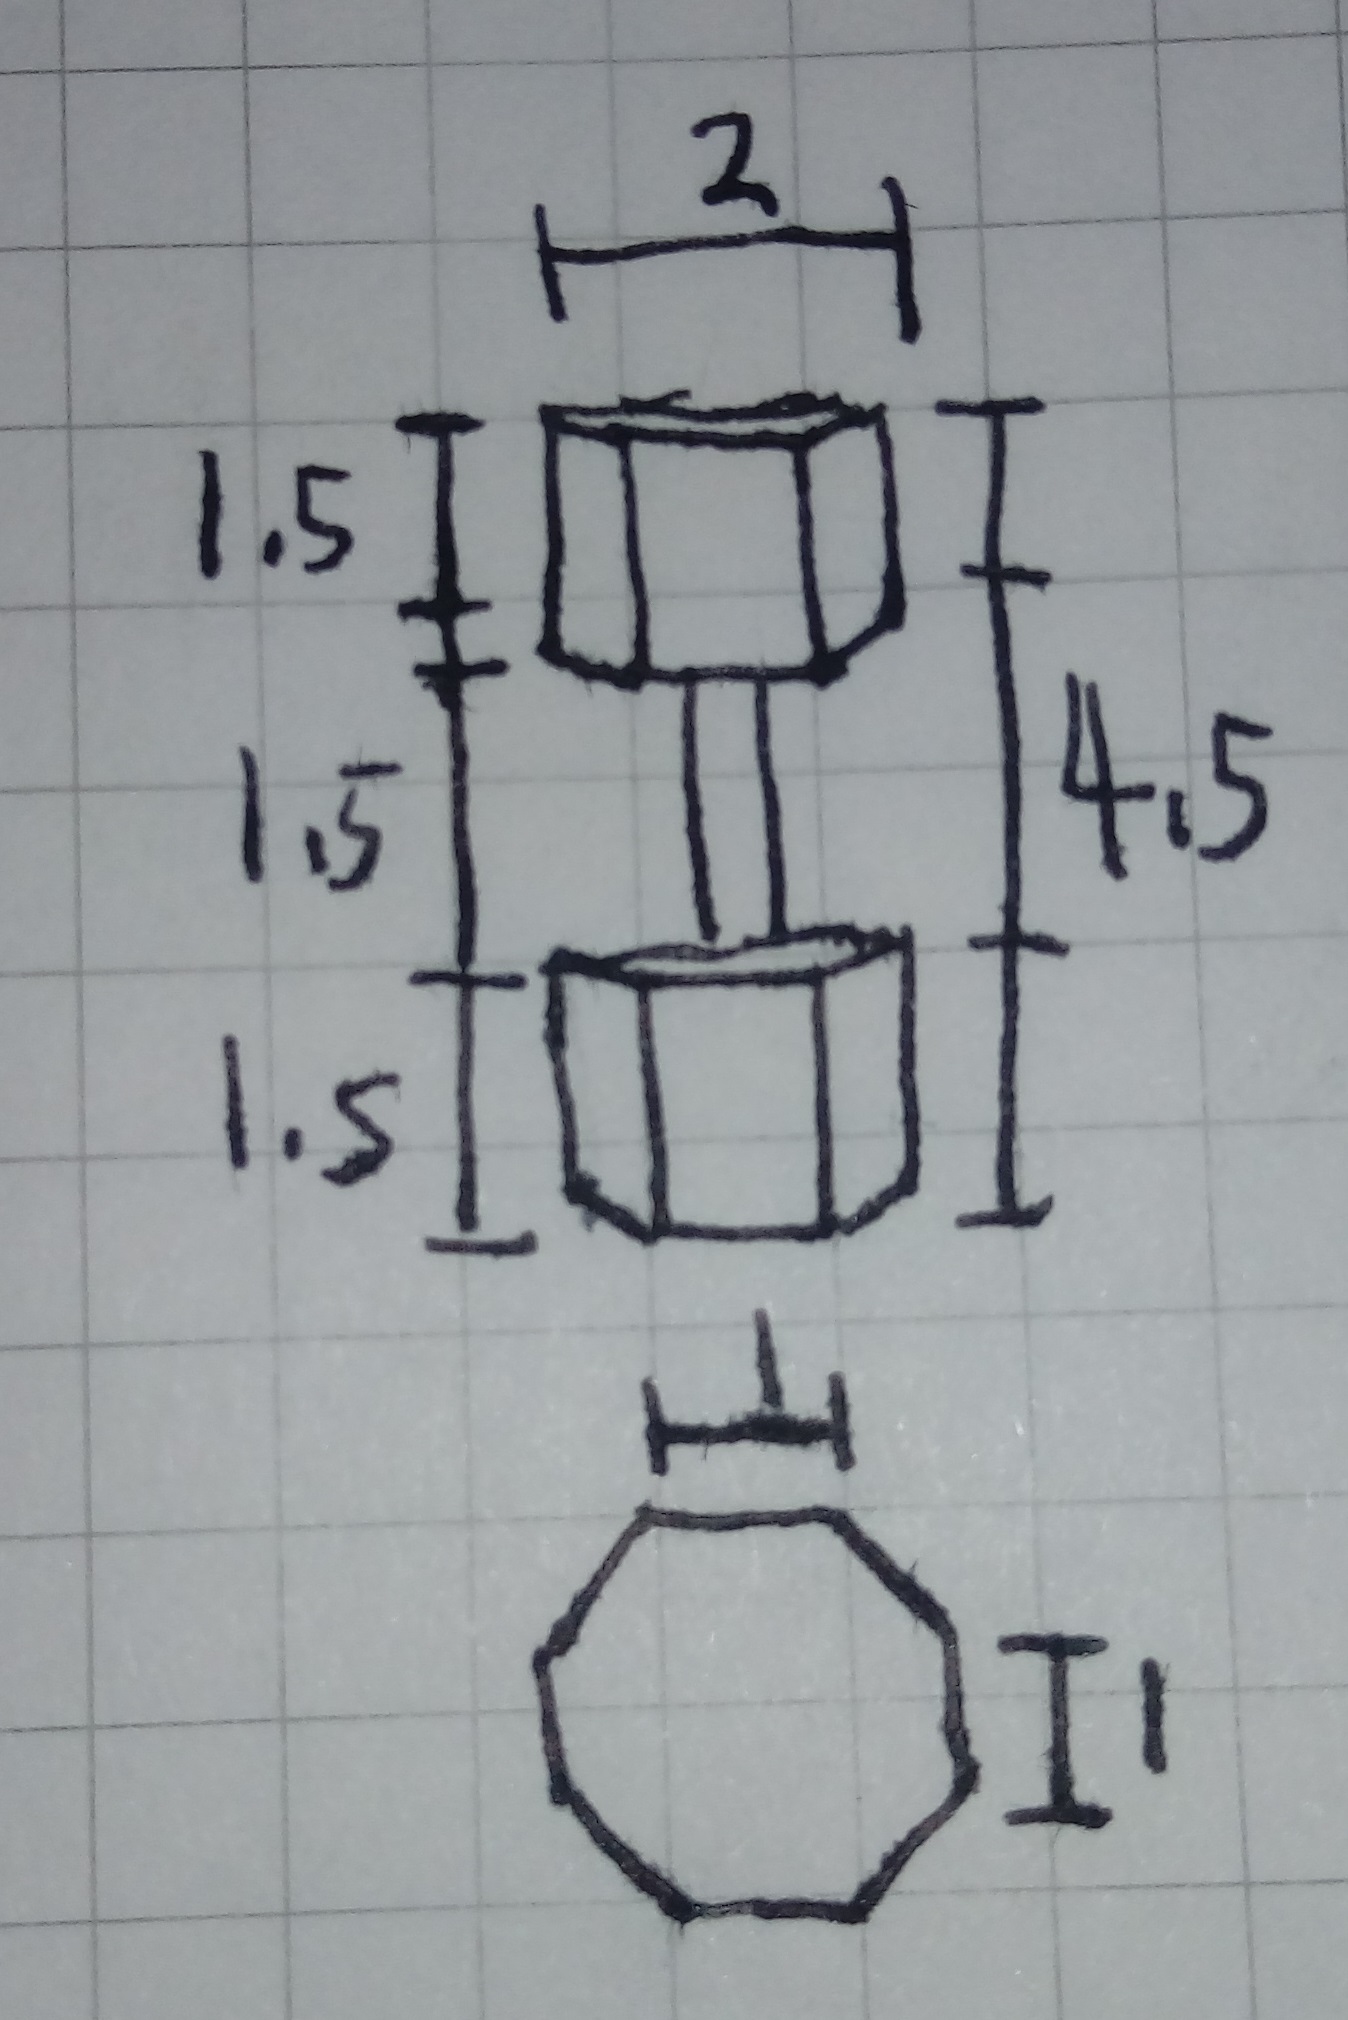 2
1.5
1.5
4.5
1.5
1
1